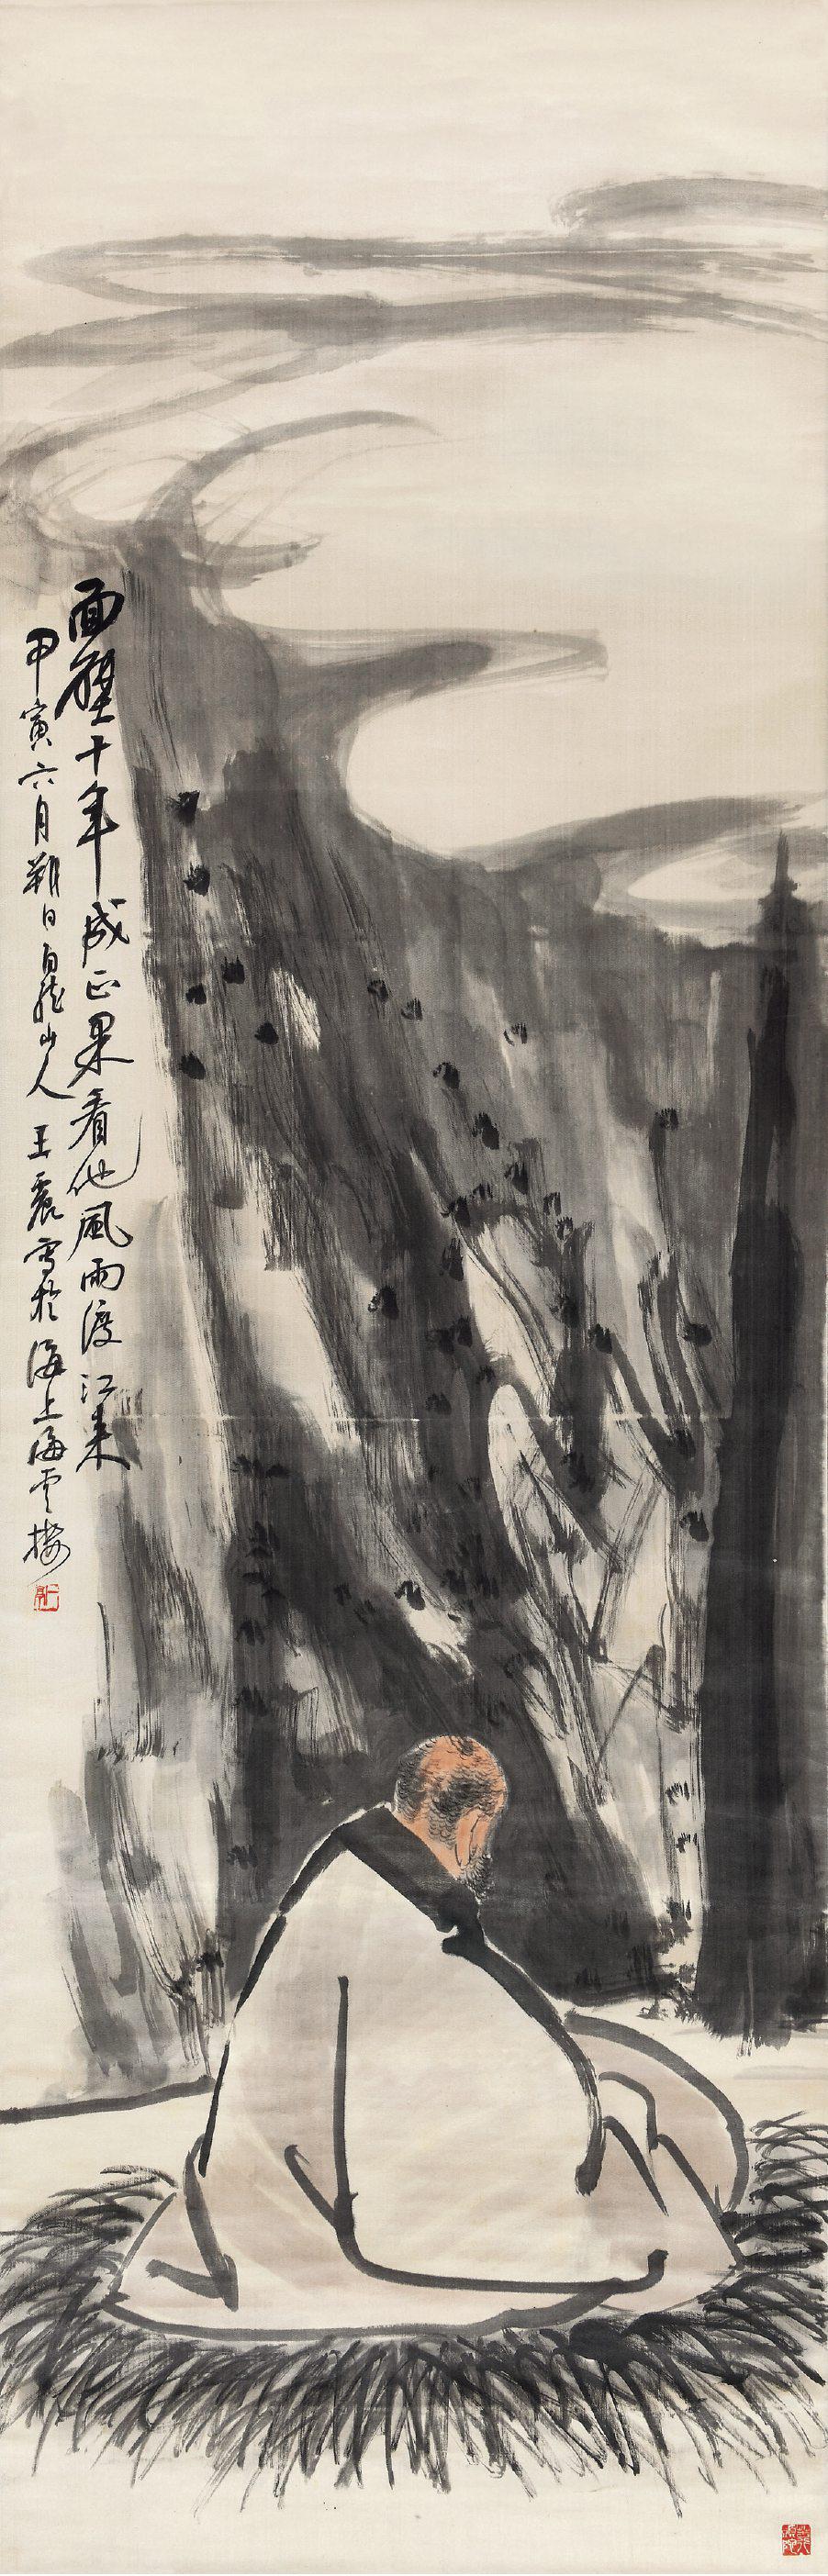 面壁十年成正果看他風雨渡江来
甲寅六月朔日白龍山人王震寫於海上海雲樓